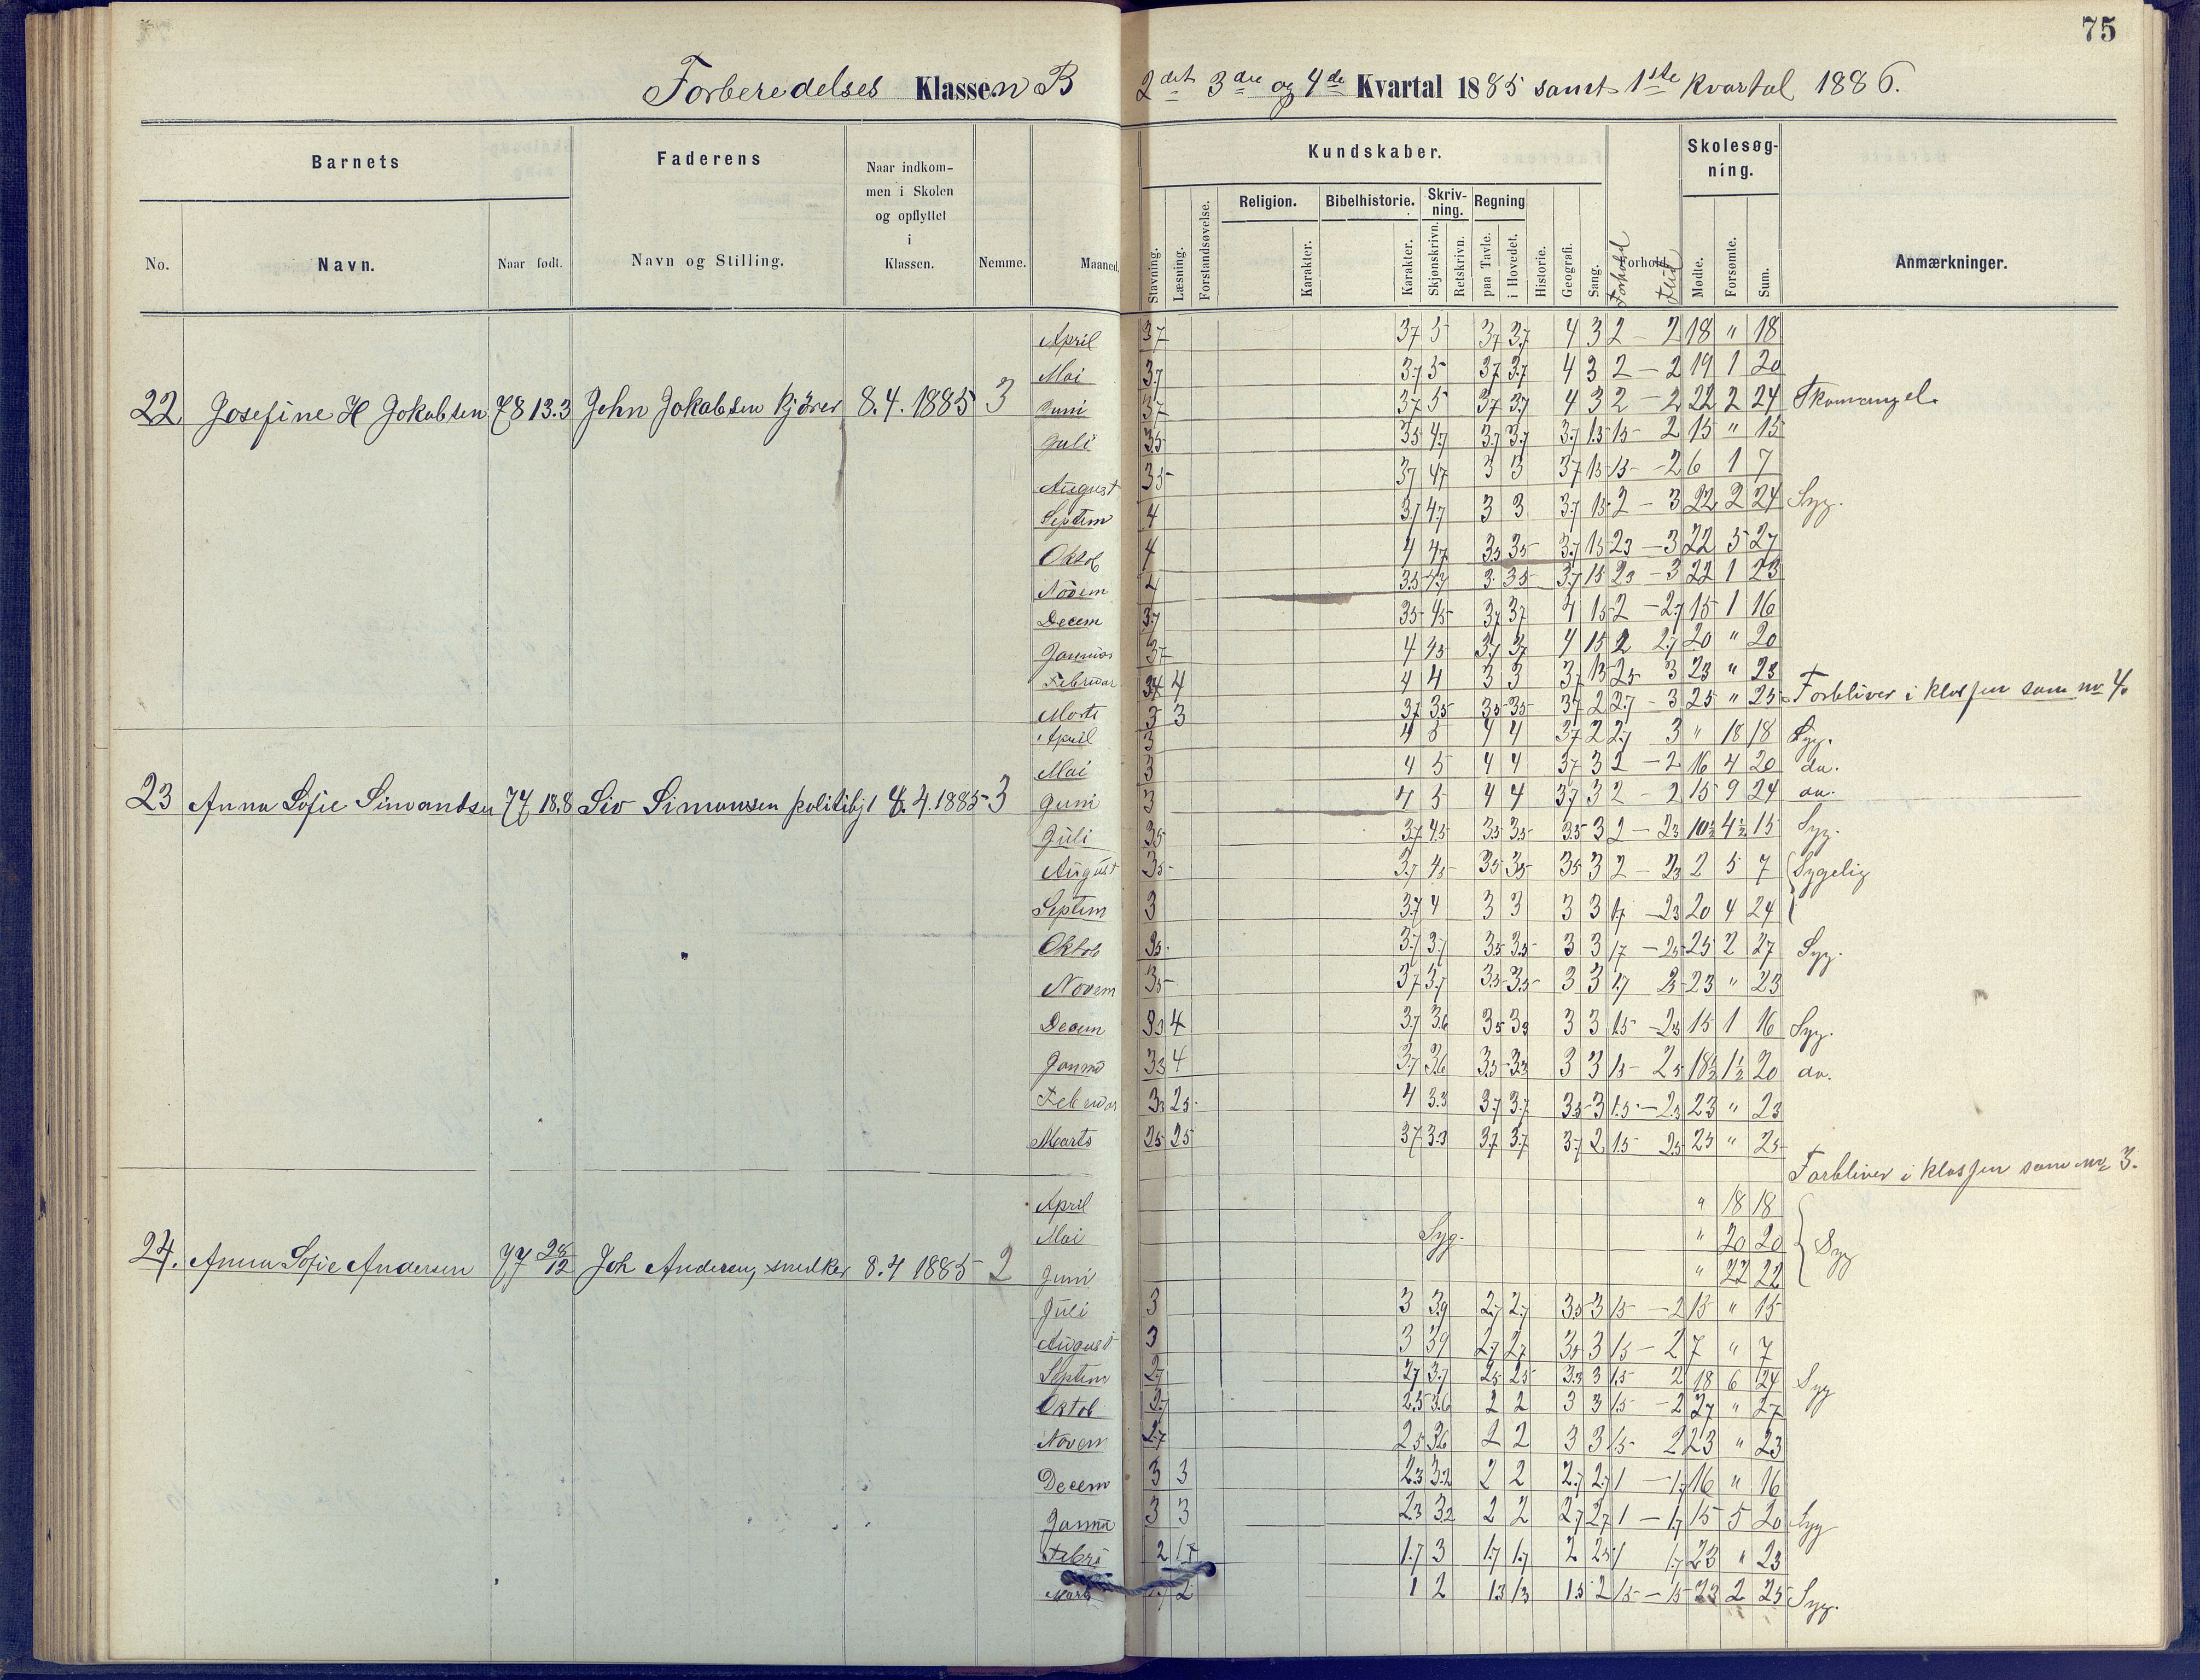 75
Forberedelses Klassen B 2det 3die og 4de Kvartal 1885 samt 1ste Kvartal 1886.
Barnets Faderens Naar indkommen i Skolen og opflyttet i Klassen. Nemme. Maaned. Kundskaber. Forhold. Skolesøgning. Anmærkninger.
No. Navn. Naar født. Navn og Stilling. Stavning. Læsning. Forstandsøvelse. Religion. Karakter. Bibelhistorie. Karakter. Skrivning. Skjønskrivn. Retskrivn. Regning paa Tavle. i Hovedet. Historie. Geografi. Sang. Forhold Flid Mødte. Forsømte. Sum.
22 Josefine H Jokobsen 78 13.3 John Jokobsen kjörer 8.4.1885 3
April 37 37 5 37 37 4 3 2 - 2 18 " 18
Mai 37 37 5 37 37 4 3 2 - 2 19 1 20
Juni 37 37 5 37 37 4 3 2 - 2 22 2 24 Skomangel.
Juli 35 35 47 37 37 37 15 15 2 15 " 15
August 35 37 47 3 3 37 15 15 - 2 6 1 7
Septem 4 37 47 3 3 37 15 2 - 3 22 2 24 Syg.
Oktob 4 4 47 35 35 37 15 23 - 3 22 5 27
Novem 4 35 47 3 35 37 15 23 - 3 22 1 23
Decem 37 35 45 37 37 4 15 2 - 27 15 1 16
Januar 37 4 45 37 37 4 15 2 27 20 " 20
Februar 4 4 4 3 3 37 15 25 3 23 " 23
Marts 3 3 37 35 35 35 37 2 27 - 3 25 " 25 Forbliver i klassen som no 4.
23 Anna Sofie Simonsen 77 18.8 Siv Simonsen politibj 8.4.1885 3
April 3 4 5 4 4 37 2 27 3 " 18 18 Syg.
Mai 3 4 5 4 4 37 3 2 - 2 16 4 20 do.
Juni 3 4 5 4 4 37 3 2 - 2 15 9 24 do.
Juli 35 37 45 35 35 35 3 2 - 23 10½ 4½ 15 Syg.
August 35 37 45 35 35 35 3 2 - 23 2 5 7 Sygelig
Septem 3 37 4 3 3 3 3 17 - 23 20 4 24
Oktob 35 37 37 35 35 3 3 17 - 25 25 2 27 Syg.
Novem 35 37 37 35 35 3 3 17 23 " 23
Decem 33 4 37 36 35 33 3 3 15 - 23 15 1 16 Syg.
Janua 33 4 37 36 33 33 3 3 15 - 25 18½ 1½ 20 do.
Februar 33 25 4 33 37 37 35 3 15 - 25 23 " 23
Marts 25 25 37 33 37 37 37 2 15 25 25 " 25
Forbliver i klassen som no 3.
24. Anna Sofie Andersen 77 28/12 Joh Andersen, snedker 8.4 1885 2
April " 18 18
Mai Syg. " 20 20 Syg
Juni " 22 22
Juli 3 3 39 27 27 35 3 15 - 2 15 " 15
August 3 3 39 27 27 35 3 15 - 2 7 " 7
Septem 27 27 37 25 25 33 3 15 2 18 6 24 Syg
Oktob 27 25 36 2 2 3 3 15 - 2 27 " 27
Novem 27 25 36 2 2 3 3 15 2 23 " 23
Decem 3 3 23 32 2 2 27 27 1 - 17 16 " 16
Janua 3 3 23 32 2 2 27 27 1 - 17 15 5 20 Syg
Febru 2 17 17 3 17 17 2 25 1 17 23 " 23
Marts 2 1 2 13 13 15 2 15 - 15 23 2 25 Syg.